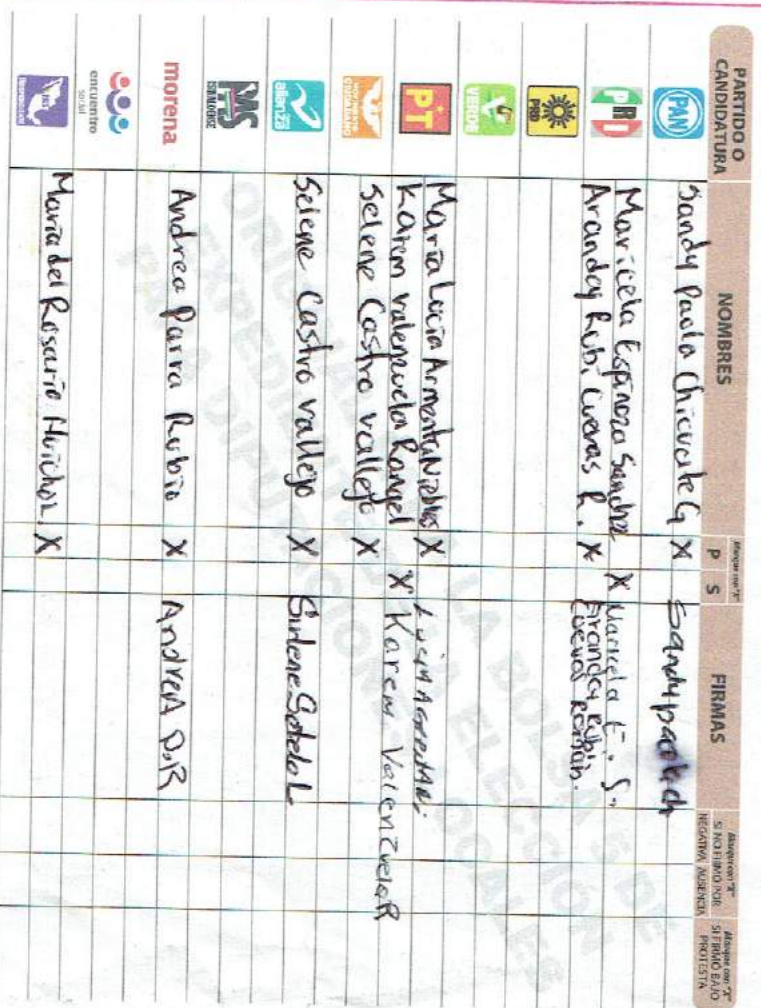 PARTIDO O CANDIDATURA
NOMBRES
Marque con "X"
P S
FIRMAS
Marque con "X" SI NO FIRMÓ POR
NEGATIVA AUSENCIA
Marque con "X" SI FIRMÓ BAJO PROTESTA
PAN Sandy Paola Chicuate G X Sandy paola ch
PRI Maricela Espinoza Sanchez X Maricela E. S.
Aranday Rubi Cuevas R. X Aranday Rubi
Cuevas Román.
PRD
VERDE
PT María Lucia Armenta Nieblas X Lucia
Karem Valenzuela Rangel X Karem Valenzuela R
MOVIMIENTO CIUDADANO Selene Castro vallejo X
alianza Selene Castro vallejo X Sotelo L
PAS SINALOENSE
morena Andrea Parra Rubio X Andrea P.R
encuentro social
María del Rosario X
ORIGINAL LA BOLSA DE
EXPEDIENTE ELECCIÓN
PARA DIPUTACIONES LOCALES